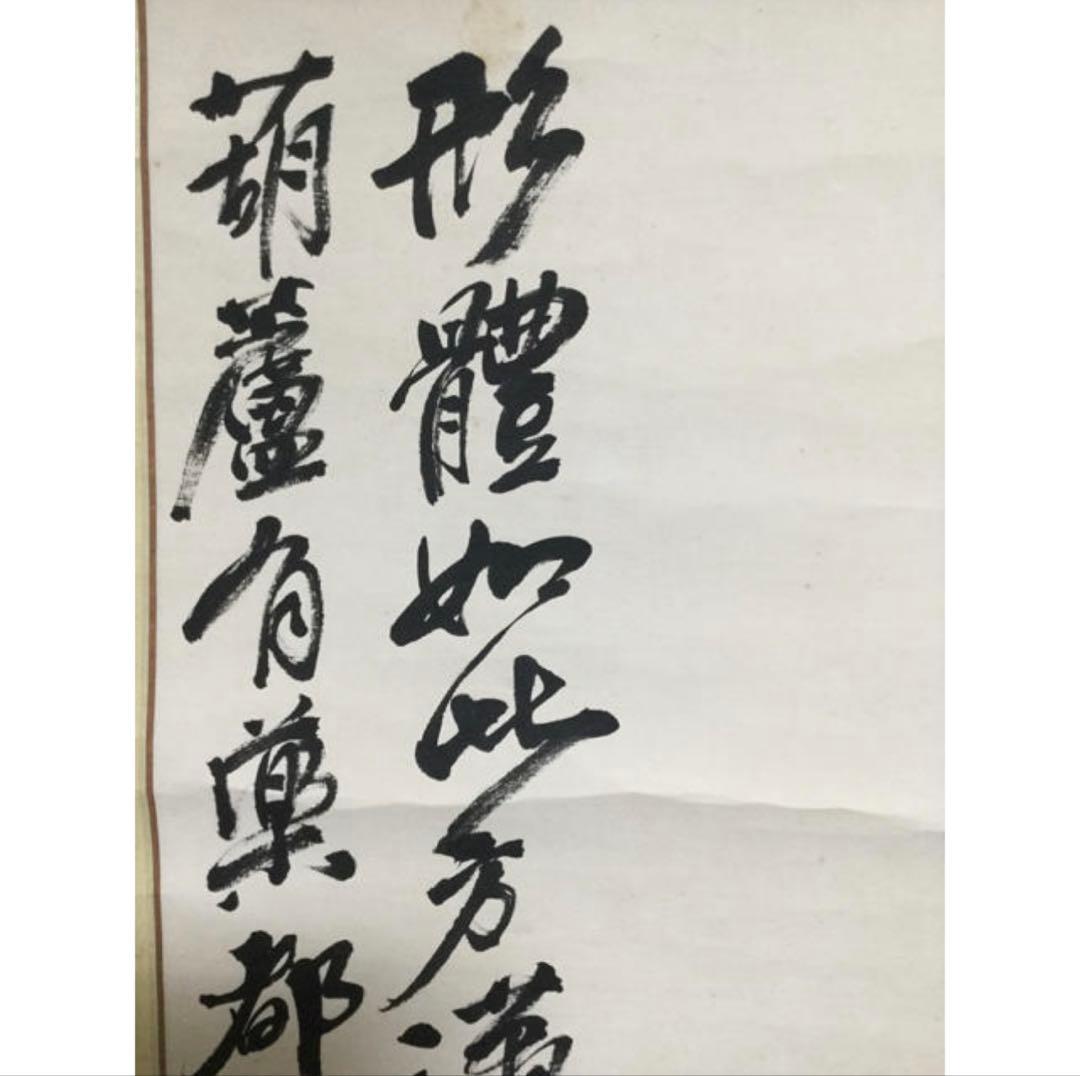 形體如此芳
葫蘆有藥都